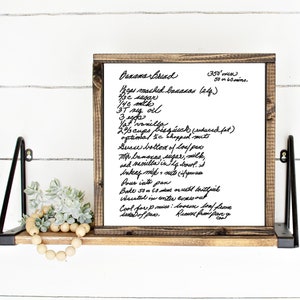 Banana Bread 350° oven
50 to 60 mins.
mashed bananas (2 lg)
sugar
milk
3 T veg oil
3 eggs
vanilla
2 2/3 cups bisquick (reduced fat)
optional ½c chopped nuts
Grease bottom of loaf pan
Mix bananas sugar, milk,
oil vanilla in lg bowl, +
baking mix + nuts
Pour into pan
Bake 50 to 60 min or until toothpick
inserted in center comes out
Cool for 10 mins: loosen loaf from
sides of pan. Remove from pan